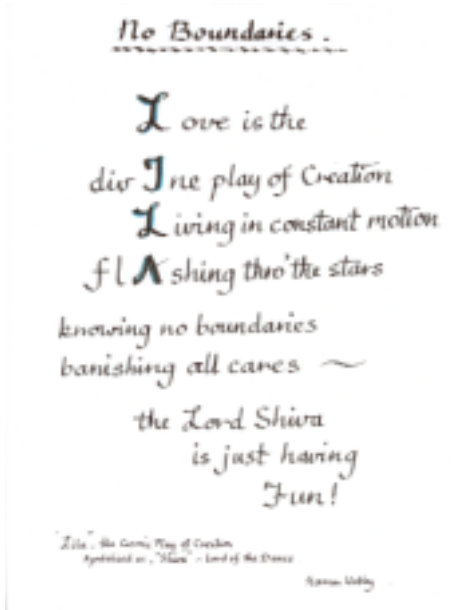 No Boundaries.
Love is the
divIne play of Creation
Living in constant motion
flAshing thro' the stars
knowing no boundaries
banishing all cares ~
the Lord Shiva
is just having
Fun!
"Lila", the Cosmic Play of Creation
"Shiva" - Lord of the Dance